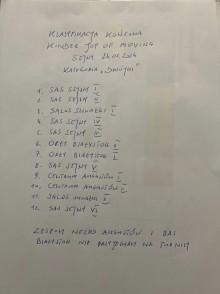 KLASYFIKACJA KOŃCOWA
KINDER JOY OF MOVING
SEJNY 24.02.2024
KATEGORIA „DWÓJKI"
1. SAS SEJNY I
2. SAS SEJNY II
3. SALOS SUWAŁKI I
4. SAS SEJNY III
5. SAS SEJNY IV
6. ORŁY BIAŁYSTOK II
7. ORŁY BIAŁYSTOK I
8. SAS SEJNY V
9. CENTRUM AUGUSTÓW I
10. CENTRUM AUGUSTÓW II
11. SALOS SUWAŁKI II
12. SAS SEJNY VI
ZESPÓŁ AUGUSTÓW I BAS
BIAŁYSTOK NIE NA TURNIEJ